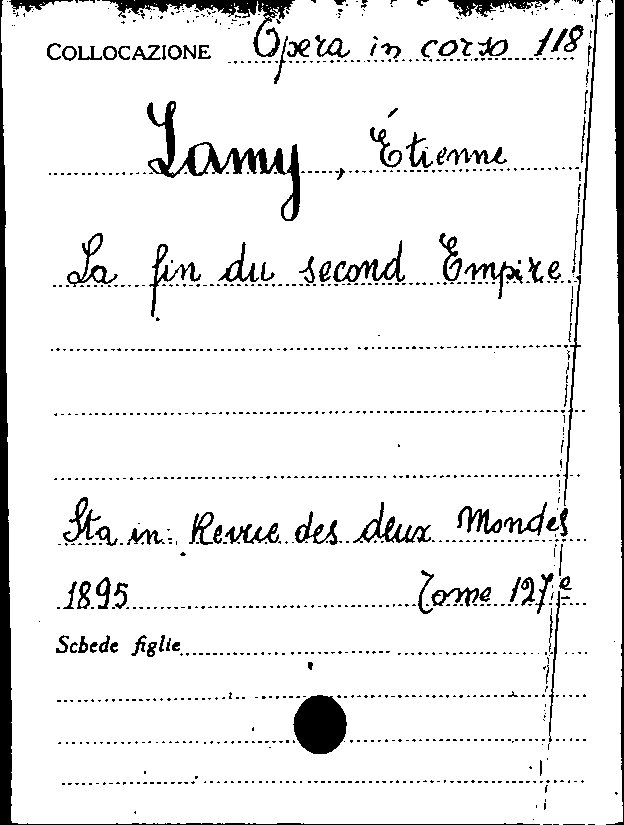 COLLOCAZIONE Opera in corso 118
Lamy, Étienne
La fin du second Empire
Sta in: Revue des deux Mondes
1895 Tome 127e
Schede figlie